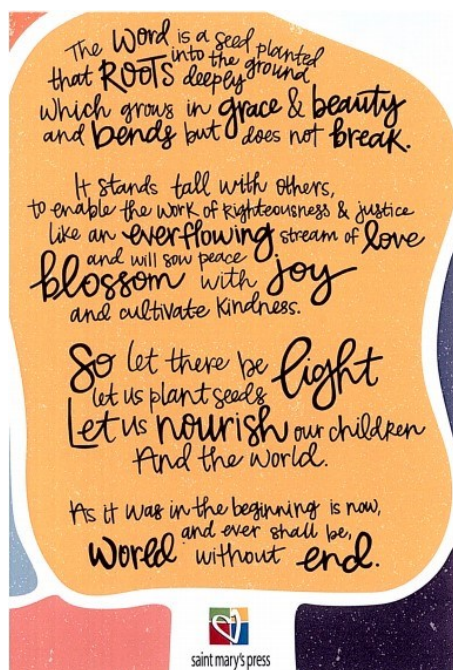 The Word is a seed planted
that ROOTS deeply into the ground
which grows in grace & beauty
and bends but does not break.
It stands tall with others,
to enable the work of righteousness & justice
like an everflowing stream of love
and will sow peace
blossom with joy
and cultivate kindness.
So let there be light
let us plant seeds
Let us nourish our children
And the world.
As it was in the beginning is now,
and ever shall be,
World without end.
saint mary's press